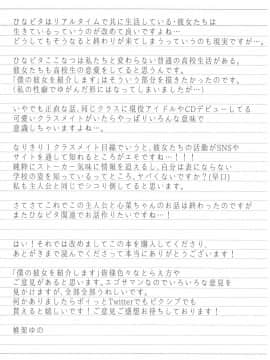 ひなビタはリアルタイムで共に生活している・彼女たちは
生きているっていうのが改めて良いですよね…
どうしてもそうなると終わりが来てしまうっていうのも現実ですが…。
ひなビタここなつは私たちと変わらない普通の高校生活がある。
彼女たちも高校生の恋愛をしてると思うんです。
「僕の彼女を紹介します」はそういう部分を描きたかったのです。
（私の性癖でゆがんだ形にはなってしまいましたが）…
いやでも正直な話、同じクラスに現役アイドルやCDデビューしてる
可愛いクラスメイトがいたらやっぱりいろんな意味で
意識しちゃいますよね…。
なりきり1クラスメイト目線でいうと、彼女たちの活動がSNSや
サイトを通して知れるところがエモですよね…！！！
純粋にストーカー気味に情報を追えるし、自分は表にならない
学校の姿を知っているってところ、ヤバくないですか？(早口)
私も主人公と同じでシコり倒してると思います。
さてさてこれでこの主人公と心菜ちゃんのお話は終わったのですが
またひなビタ関連でお話作りたいですね…！
はい！それでは改めましてこの本を購入してくださり、
あとがきまで読んでくださって本当にありがとうございます！
「僕の彼女を紹介します」皆様色々なとらえ方や
ご意見があると思います。エゴサマンなのでいろいろな意見を
見かけますが、全部全部うれしいです。
何かありましたらポイっとTwitterでもピクシブでも
貰えると嬉しいです！ご意見ご感想お待ちしております！
椎架ゆの